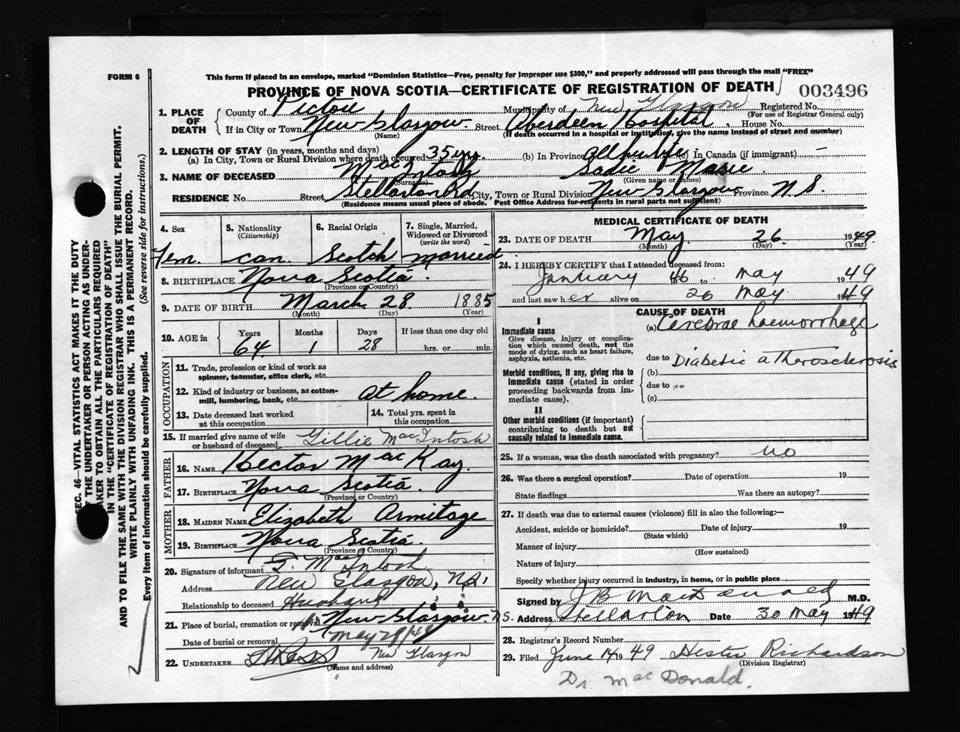 FORM 6
This form if placed in an envelope, marked "Dominion Statistics—Free, penalty for improper use $300," and properly addressed will pass through the mail "FREE"
PROVINCE OF NOVA SCOTIA—CERTIFICATE OF REGISTRATION OF DEATH
003496
1. PLACE OF DEATH
County of Pictou Municipality of New Glasgow Registered No.
(For use of Registrar General only)
If in City or Town New Glasgow Street Aberdeen Hospital House No.
(Name) (If death occurred in a hospital or institution, give the name instead of street and number)
2. LENGTH OF STAY (in years, months and days)
(a) In City, Town or Rural Division where death occurred 35 yrs (b) In Province all her life (c) In Canada (if immigrant)
3. NAME OF DECEASED MacIntosh Marie
(Surname) (Given name or names)
RESIDENCE No. Street Stellarton Rd City, Town or Rural Division New Glasgow Province N.S.
(Residence means usual place of abode. Post Office Address for residents in rural parts not sufficient)
4. Sex
Fem.
5. Nationality
(Citizenship)
Can.
6. Racial Origin
Scotch
7. Single, Married, Widowed or Divorced
(write the word)
married
8. BIRTHPLACE Nova Scotia
(Province or Country)
9. DATE OF BIRTH March 28 1885
(Month) (Day) (Year)
10. AGE in
Years Months Days If less than one day old
64 1 28 hrs. or min.
OCCUPATION
11. Trade, profession or kind of work as spinner, teamster, office clerk, etc.
12. Kind of industry or business, as cotton-mill, lumbering, bank, etc. at home.
13. Date deceased last worked at this occupation
14. Total yrs. spent in this occupation
15. If married give name of wife or husband of deceased Gillie MacIntosh
FATHER
16. NAME Hector MacKay
17. BIRTHPLACE Nova Scotia.
(Province or Country)
MOTHER
18. MAIDEN NAME Elizabeth Armitage
19. BIRTHPLACE Nova Scotia.
(Province or Country)
20. Signature of informant G. MacIntosh
Address New Glasgow, N.S.
Relationship to deceased Husband
21. Place of burial, cremation or removal New Glasgow N.S.
Date of burial or removal May 28/49
22. UNDERTAKER New Glasgow
(Name and address)
MEDICAL CERTIFICATE OF DEATH
23. DATE OF DEATH May 26 1949
(Month) (Day) (Year)
24. I HEREBY CERTIFY that I attended deceased from:
January 46 to May 1949
and last saw her alive on 26 May 1949
CAUSE OF DEATH
I
Immediate cause
Give disease, injury or complication which caused death, not the mode of dying, such as heart failure, asphyxia, asthenia, etc.
(a) Cerebral haemorrhage
due to Diabetic atherosclerosis
Morbid conditions, if any, giving rise to immediate cause (stated in order proceeding backwards from immediate cause).
(b)
due to
(c)
II
Other morbid conditions (if important) contributing to death but not causally related to immediate cause.
25. If a woman, was the death associated with pregnancy? no
26. Was there a surgical operation? Date of operation 19
State findings Was there an autopsy?
27. If death was due to external causes (violence) fill in also the following:—
Accident, suicide or homicide? Date of injury 19
(State which)
Manner of injury
(How sustained)
Nature of injury
Specify whether injury occurred in industry, in home, or in public place
Signed by J B MacDonald M.D.
Address Stellarton Date 30 May 1949
28. Registrar's Record Number
29. Filed June 14 1949 Hester Richardson
(Division Registrar)
Dr MacDonald.
SEC. 46—VITAL STATISTICS ACT MAKES IT THE DUTY
OF THE UNDERTAKER OR PERSON ACTING AS UNDERTAKER TO OBTAIN ALL THE PARTICULARS REQUIRED
IN THE "CERTIFICATE OF REGISTRATION OF DEATH"
AND TO FILE THE SAME WITH THE DIVISION REGISTRAR WHO SHALL ISSUE THE BURIAL PERMIT.
WRITE PLAINLY WITH UNFADING INK. THIS IS A PERMANENT RECORD.
Every item of information should be carefully supplied. (See reverse side for instructions.)